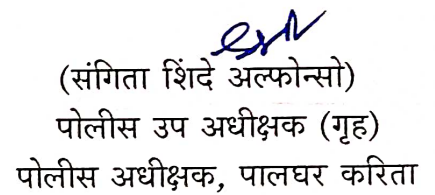 (संगिता शिंदे अल्फोन्सो)
पोलीस उप अधीक्षक (गृह)
पोलीस अधीक्षक, पालघर करिता